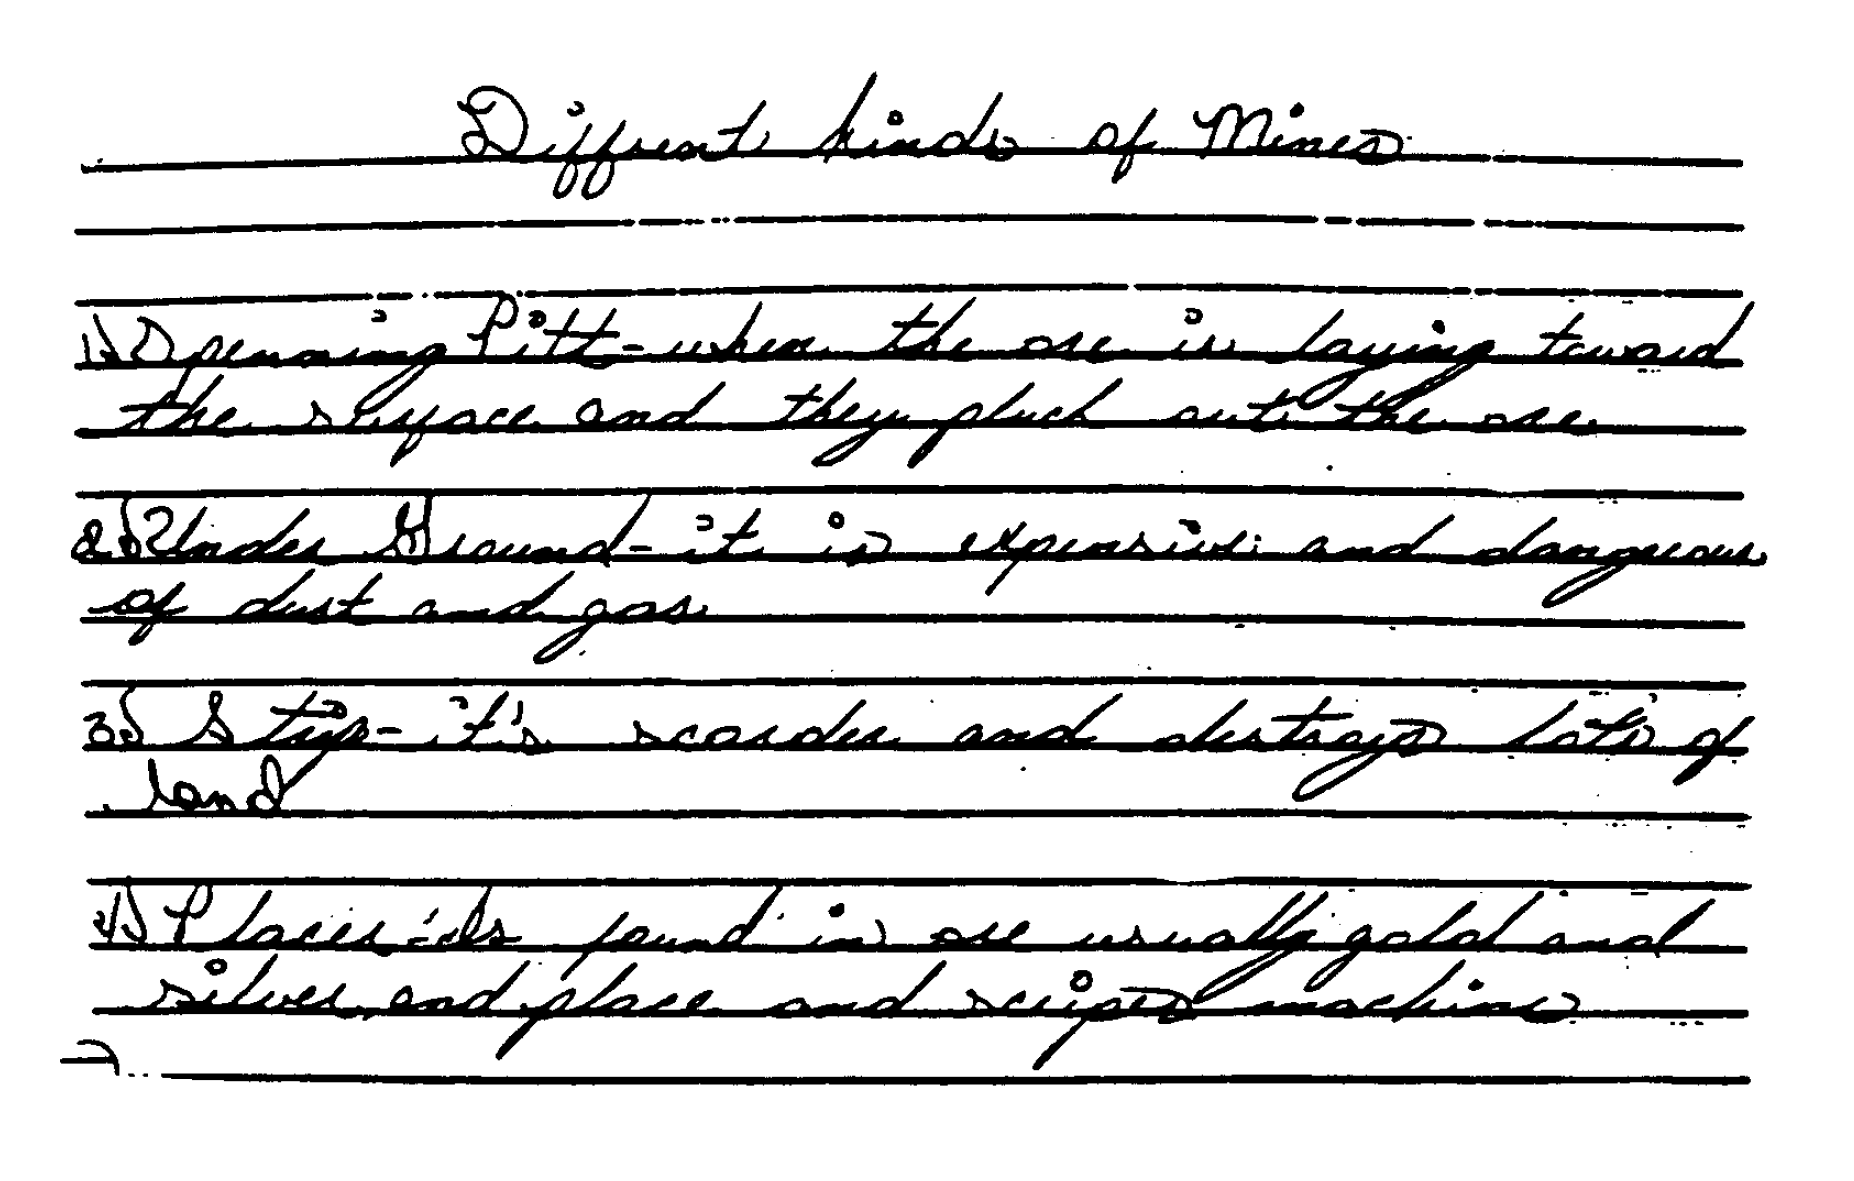 Diffrent kinds of Mines
1) Openning Pitt - when the ore is laying toward
the surface and they pluck out the ore.
2) Under Ground - it is expensive and dangerous
of dust and gas
3) Strip - it's and destroys lots of
land
4) Placer - is found in ore usually gold and
silver, and place and machine